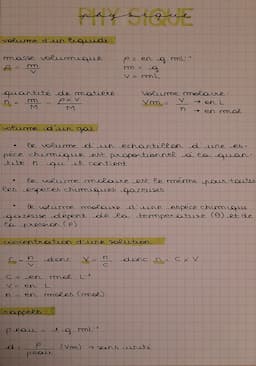 PHYSIQUE
physique
volume d'un liquide
masse volumique
ρ = m/V
ρ = en g.mL⁻¹
m = g
V = mL
quantité de matière
n = m/M = ρ×V/M
Volume molaire
Vm = V/n → en L
→ en mol
volume d'un gaz
• Le volume d'un échantillon d'une es-
pèce chimique est proportionnel à la quan-
tité n qu'il contient
• Le volume molaire est le même pour toutes
les espèces chimiques gazeuses
• le volume molaire d'une espèce chimique
gazeuse dépend de la température (θ) et de
la pression (P)
concentration d'une solution
C = n/V donc V = n/C donc n = C × V
C = en mol.L⁻¹
V = en L
n = en moles (mol)
rappels :
ρ eau = 1 g.mL⁻¹
d = ρ/ρeau (Vm) → sans unité